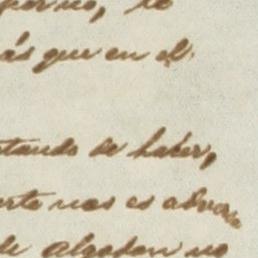 por no, lo
ás que en el
tando de haber,
erte nos es adver
de algodon no